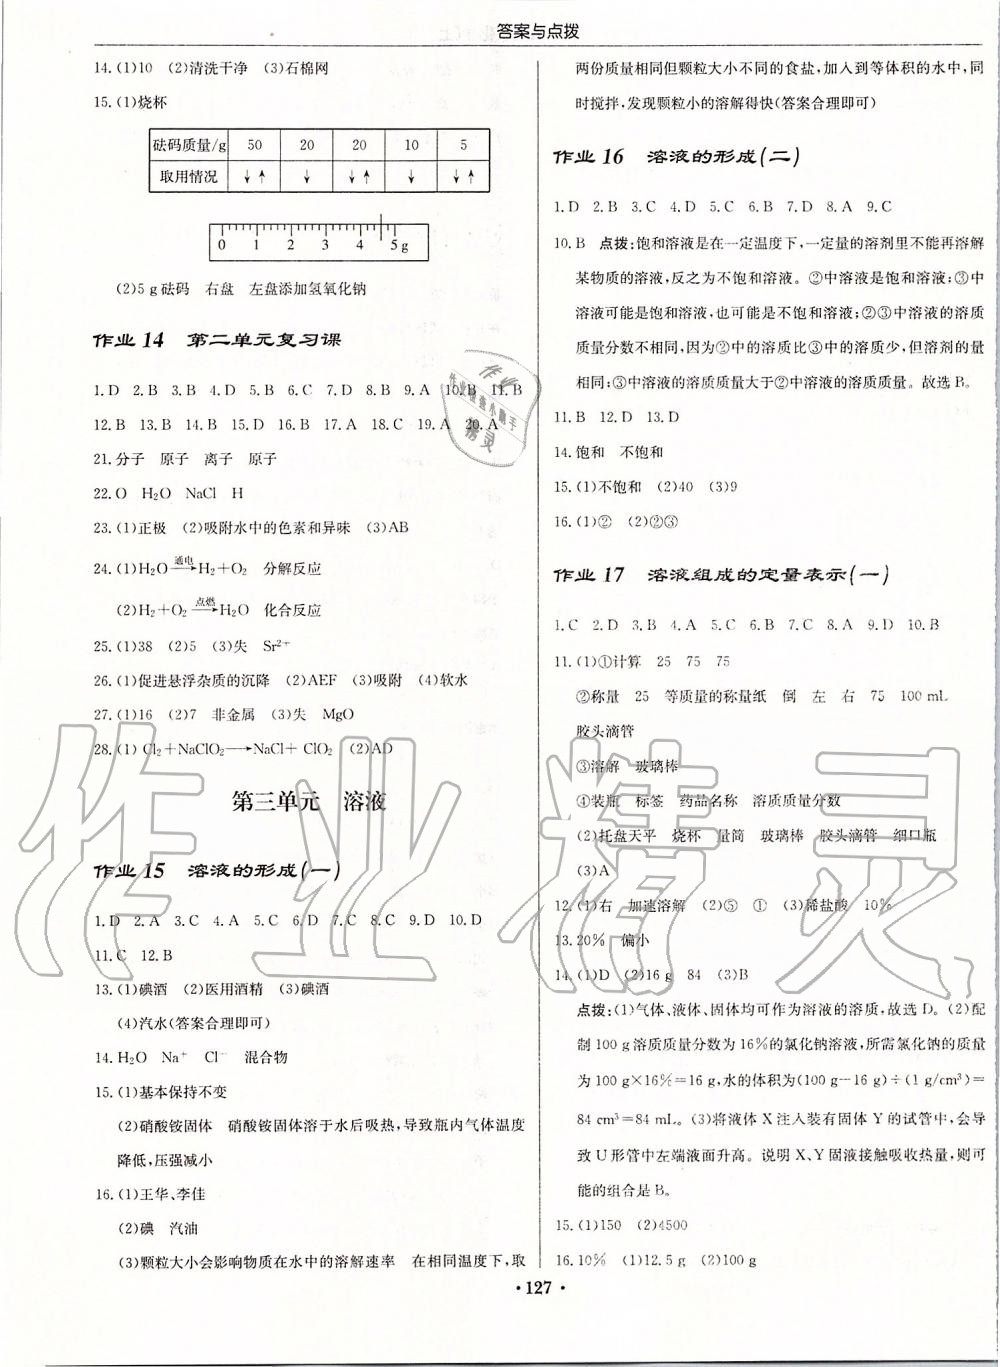 答案与点拨
14.(1)10 (2)清洗干净 (3)石棉网
15.(1)烧杯
砝码质量/g 50 20 20 10 5
取用情况 ↓↑ ↓ ↓↑ ↓ ↓↑
0 1 2 3 4 5g
(2)5 g砝码 右盘 左盘添加氢氧化钠
作业14 第二单元复习课
1.D 2.B 3.B 4.D 5.B 6.C 7.D 8.B 9.A 10.B 11.B
12.B 13.B 14.B 15.D 16.B 17.A 18.C 19.A 20.A
21.分子 原子 离子 原子
22.O H₂O NaCl H
23.(1)正极 (2)吸附水中的色素和异味 (3)AB
24.(1)H₂O —通电→ H₂+O₂ 分解反应
(2)H₂+O₂ —点燃→ H₂O 化合反应
25.(1)38 (2)5 (3)失 Sr²⁺
26.(1)促进悬浮杂质的沉降 (2)AEF (3)吸附 (4)软水
27.(1)16 (2)7 非金属 (3)失 MgO
28.(1) Cl₂+NaClO₂→NaCl+ ClO₂ (2)AD
第三单元 溶液
作业15 溶液的形成(一)
1.D 2.A 3.C 4.A 5.C 6.D 7.C 8.C 9.D 10.D
11.C 12.B
13.(1)碘酒 (2)医用酒精 (3)碘酒
(4)汽水(答案合理即可)
14.H₂O Na⁺ Cl⁻ 混合物
15.(1)基本保持不变
(2)硝酸铵固体 硝酸铵固体溶于水后吸热,导致瓶内气体温度
降低,压强减小
16.(1)王华、李佳
(2)碘 汽油
(3)颗粒大小会影响物质在水中的溶解速率 在相同温度下,取
两份质量相同但颗粒大小不同的食盐,加入到等体积的水中,同
时搅拌,发现颗粒小的溶解得快(答案合理即可)
作业16 溶液的形成(二)
1.D 2.B 3.C 4.D 5.C 6.B 7.D 8.A 9.C
10.B 点拨:饱和溶液是在一定温度下,一定量的溶剂里不能再溶解
某物质的溶液,反之为不饱和溶液。②中溶液是饱和溶液;③中
溶液可能是饱和溶液,也可能是不饱和溶液;②③中溶液的溶质
质量分数不相同,因为②中的溶质比③中的溶质少,但溶剂的量
相同;③中溶液的溶质质量大于②中溶液的溶质质量。故选B。
11.B 12.D 13.D
14.饱和 不饱和
15.(1)不饱和 (2)40 (3)9
16.(1)② (2)②③
作业17 溶液组成的定量表示(一)
1.C 2.D 3.B 4.A 5.C 6.B 7.C 8.A 9.D 10.B
11.(1)①计算 25 75 75
②称量 25 等质量的称量纸 倒 左 右 75 100 mL
胶头滴管
③溶解 玻璃棒
④装瓶 标签 药品名称 溶质质量分数
(2)托盘天平 烧杯 量筒 玻璃棒 胶头滴管 细口瓶
(3)A
12.(1)右 加速溶解 (2)⑤ ① (3)稀盐酸 10%
13.20% 偏小
14.(1)D (2)16 g 84 (3)B
点拨:(1)气体、液体、固体均可作为溶液的溶质,故选D。(2)配
制100 g溶质质量分数为16%的氯化钠溶液,所需氯化钠的质量
为100 g×16%=16 g,水的体积为(100 g-16 g)÷(1 g/cm³)=
84 cm³=84 mL。(3)将液体X注入装有固体Y的试管中,会导
致U形管中左端液面升高。说明X、Y固液接触吸收热量,则可
能的组合是B。
15.(1)150 (2)4500
16.10% (1)12.5 g (2)100 g
· 127 ·
作业精灵